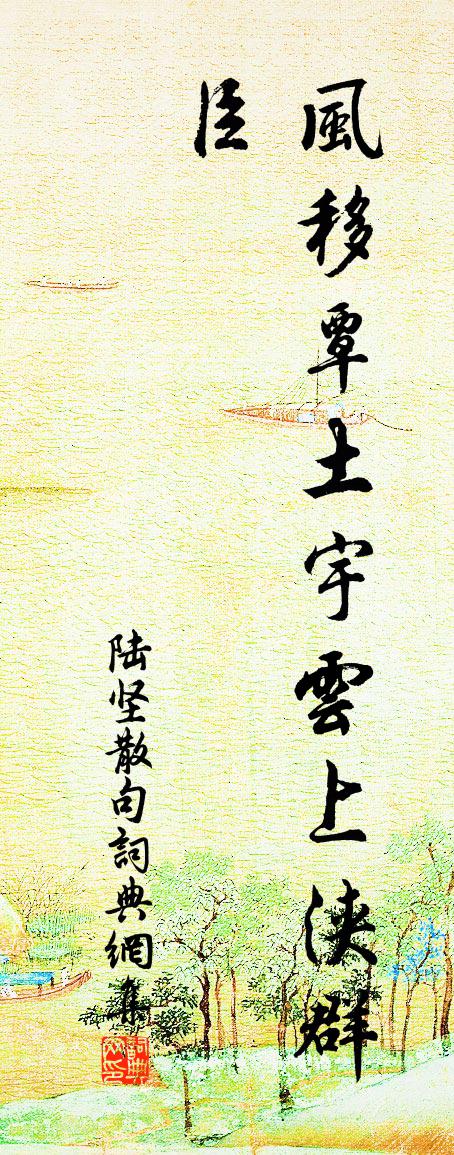 風移覃土宇雲上浹群
臣
陆坚散句詞典網集